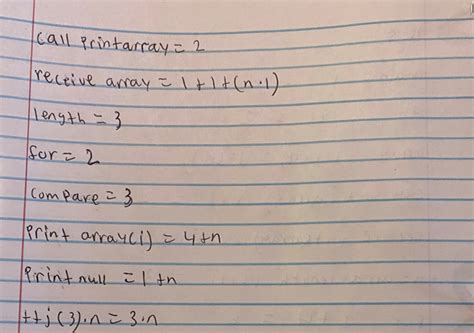 call printarray = 2
receive array = 1 + 1 + (n·1)
length = 3
for = 2
compare = 3
print array(i) = 4+n
print null = 1+n
++j(3)·n = 3·n